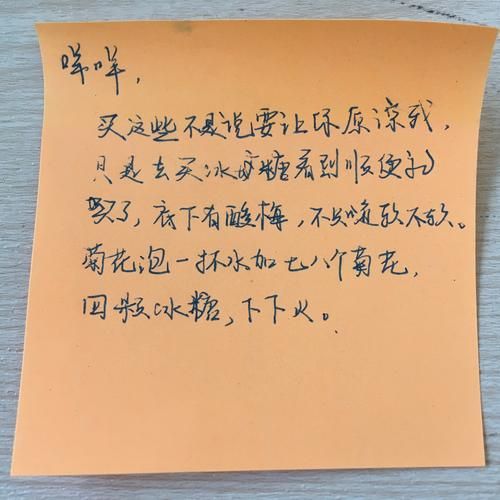 咩咩，
买这些不是说要让你原谅我，
只是去买冰糖看到顺便就
买了，底下有酸梅，不知喉软不软。
菊花泡一杯水加七八个菊花，
四颗冰糖，下下火。